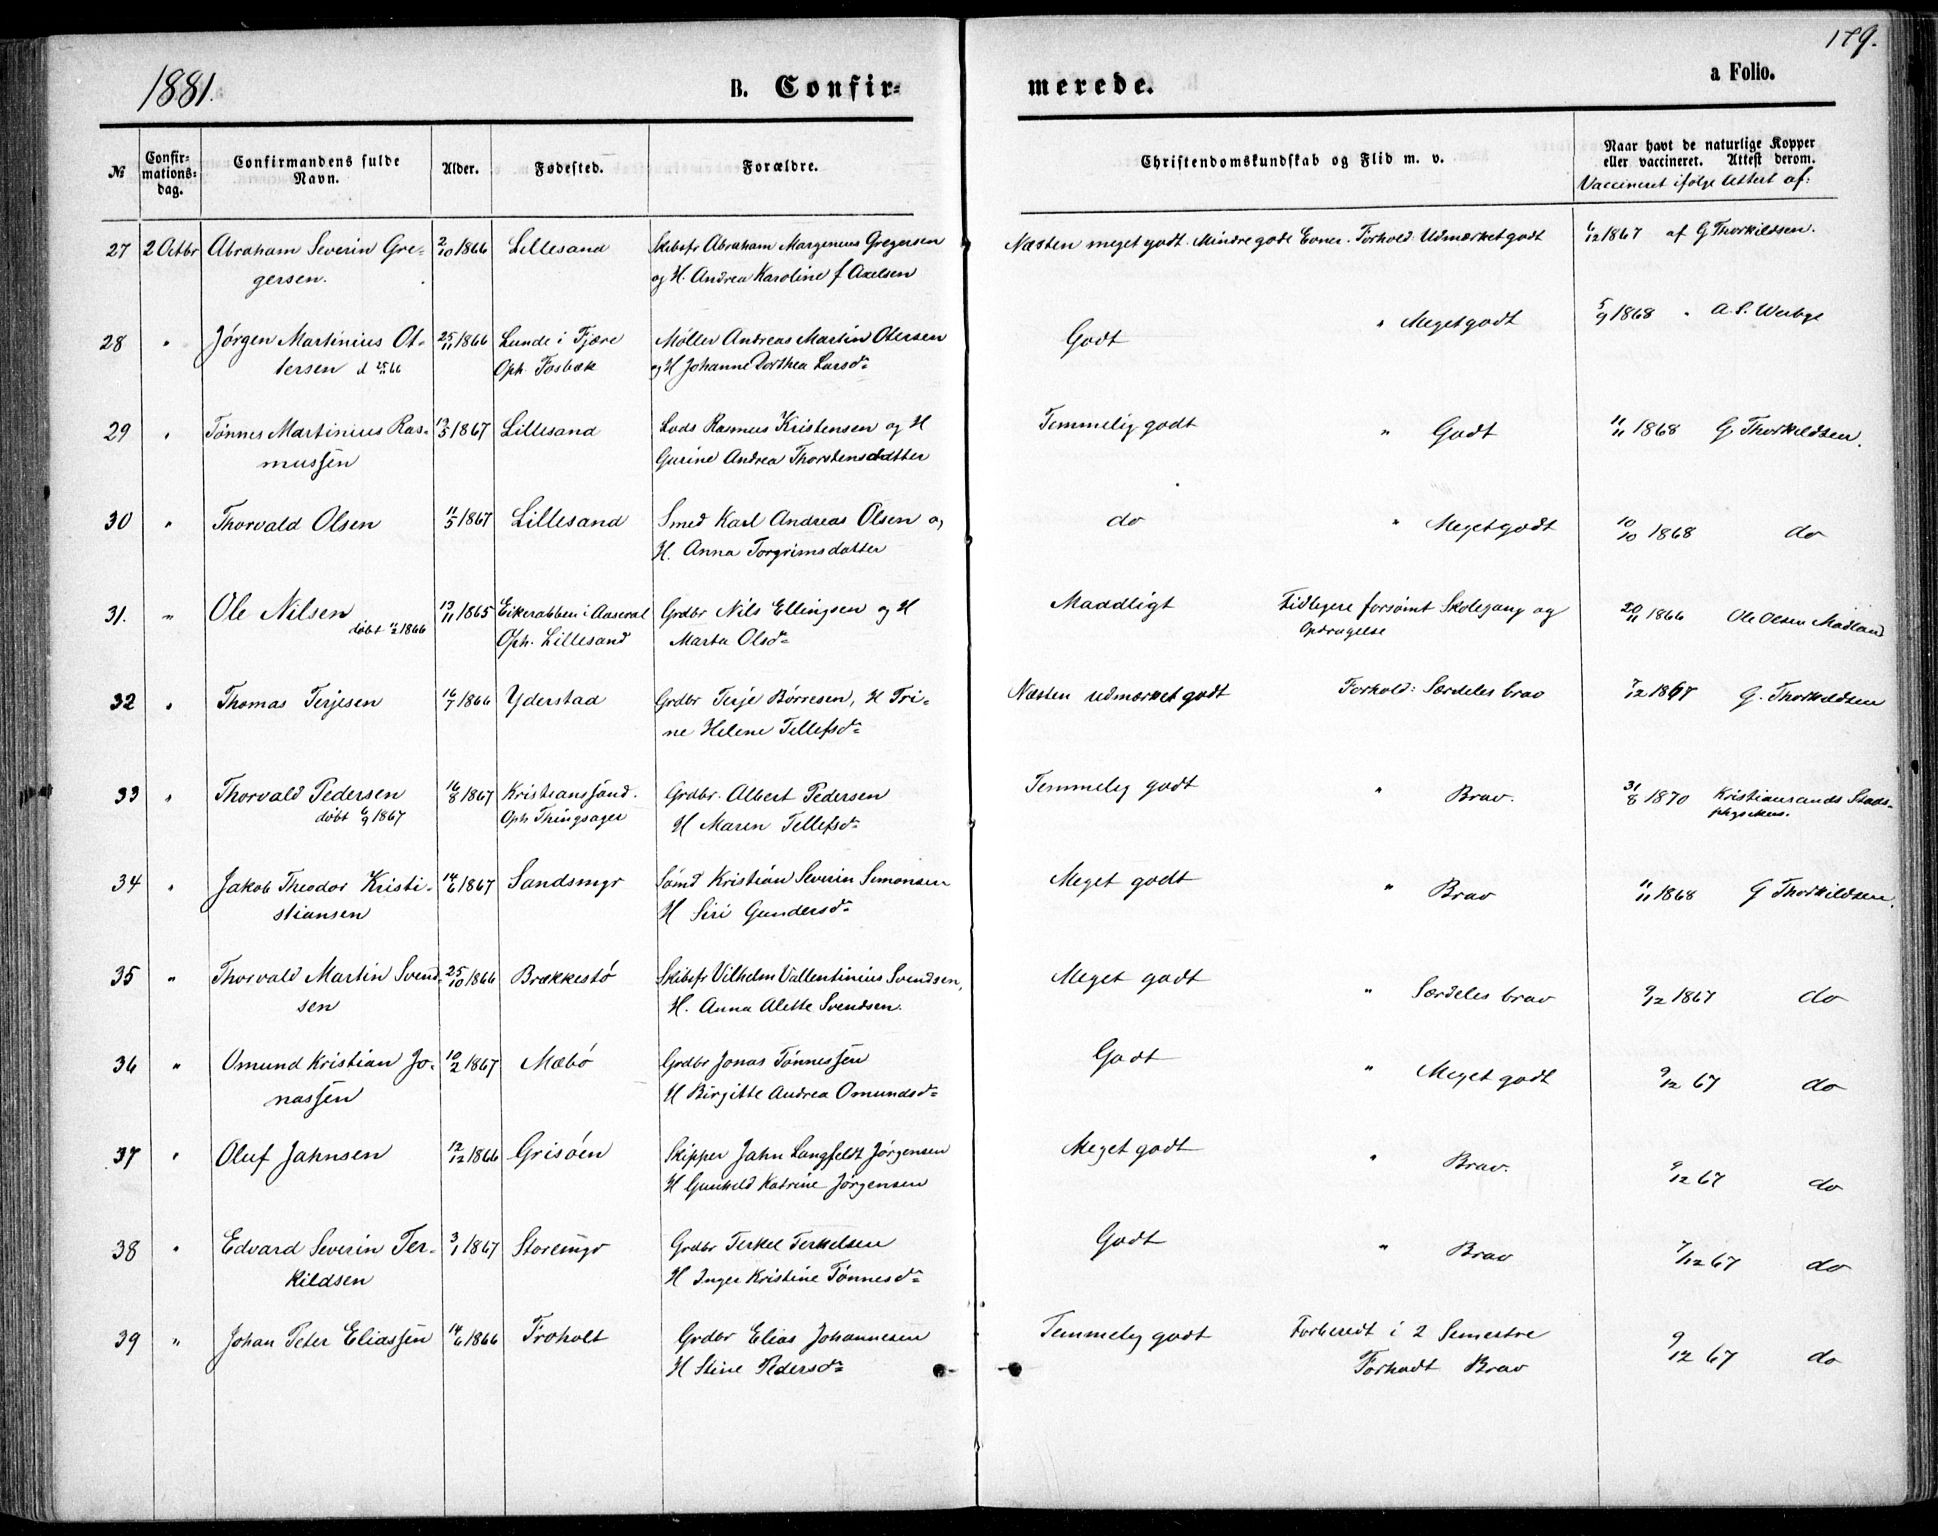 1881.
B. Confir-
merede.
a Folio.
179.
№
Confir-
mations-
dag.
Confirmandens fulde
Navn.
Alder.
Fødested.
Forældre.
Christendomskundskab og Flid m. v.
Naar havt de naturlige Kopper
eller vaccineret. Attest derom.
Vaccineret ifølge Attest af:
27 2 Octbr Abraham Severin Gre- 2/10 1866 Lillesand Skibsfr Abraham Margenius Gregersen Næsten meget godt. Mindre gode Evner. Forhold Udmærket godt 6/12 1867 af G Thorkildsen.
gersen. og H. Andrea Karoline f Axelsen
28 " Jørgen Martinius Ot- 25/11 1866 Lunde i Fjære Møller Andreas Martin Otersen Godt " Meget godt 5/9 1868 " A. S. Werbye
tersen d 25/11 66 Oph. Fosbæk og H Johanne Dorthea Larsd
29 " Tønnes Martinius Ras- 13/5 1867 Lillesand Lods Rasmus Kristensen og H Temmelig godt " Godt 11/11 1868 G. Thorkildsen.
mussen Gurine Andrea Thorstensdatter
30 " Thorvald Olsen 11/5 1867 Lillesand Smed Karl Andreas Olsen og do " Meget godt 10/10 1868 do
H. Anna Torgrimsdatter
31. " Ole Nilsen 13/11 1865 Eikerabben i Aaseral Grdbr Nils Ellingsen og H Maadligt Tidligere forsømt Skolegang og 20/11 1866 Ole Olsen Modland
døbt 1/2 1866 Oph. Lillesand Marta Olsd Opdragelse
32 " Thomas Terjesen 16/7 1866 Yderstad Grdbr Terje Børresen, H Tri- Næsten udmærket godt Forhold: Særdeles brav 7/12 1867 G. Thorkildsen
ne Helene Tellefsd
33 " Thorvald Pedersen 16/8 1867 Kristianssand. Grdbr. Albert Pedersen Temmelig godt " Brav. 31/8 1870 Kristiansands Stads-
døbt 6/9 1867 Oph Thingsager H Maren Tellefsd physikus.
34 " Jakob Theodor Kristi- 14/6 1867 Sandsmyr Sømd Kristian Severin Simonsen Meget godt " Brav 11/11 1868 G Thorkildsen.
stiansen H Siri Gundersd
35 " Thorvald Martin Svend- 25/10 1866 Brækkestø Skibsfr Vilhelm Vallentinius Svendsen, Meget godt " Særdeles brav 9/12 1867 do
sen H. Anna Alette Svendsen.
36 " Omund Kristian Jo- 10/2 1867 Mæbø Grdbr Jonas Tønnessen Godt " Meget godt 9/12 67 do
nassen H Birgitte Andrea Omundsd
37 " Oluf Jahnsen 12/12 1866 Grisøen Skipper Jahn Langfeldt Jørgensen Meget godt " Brav. 9/12 67 do
H Gunhild Katrine Jørgensen
38 " Edvard Severin Ter- 3/1 1867 Storemyr Grdbr Terkel Terkelsen Godt " Brav 7/12 67 do
kildsen H Inger Kristine Tønnesd
39 " Johan Peter Eliassen 14/6 1866 Froholt Grdbr Elias Johannesen Temmelig godt Forberedt i 2 Semestre 9/12 67 do
H Stine Pedersd Forhodt Brav